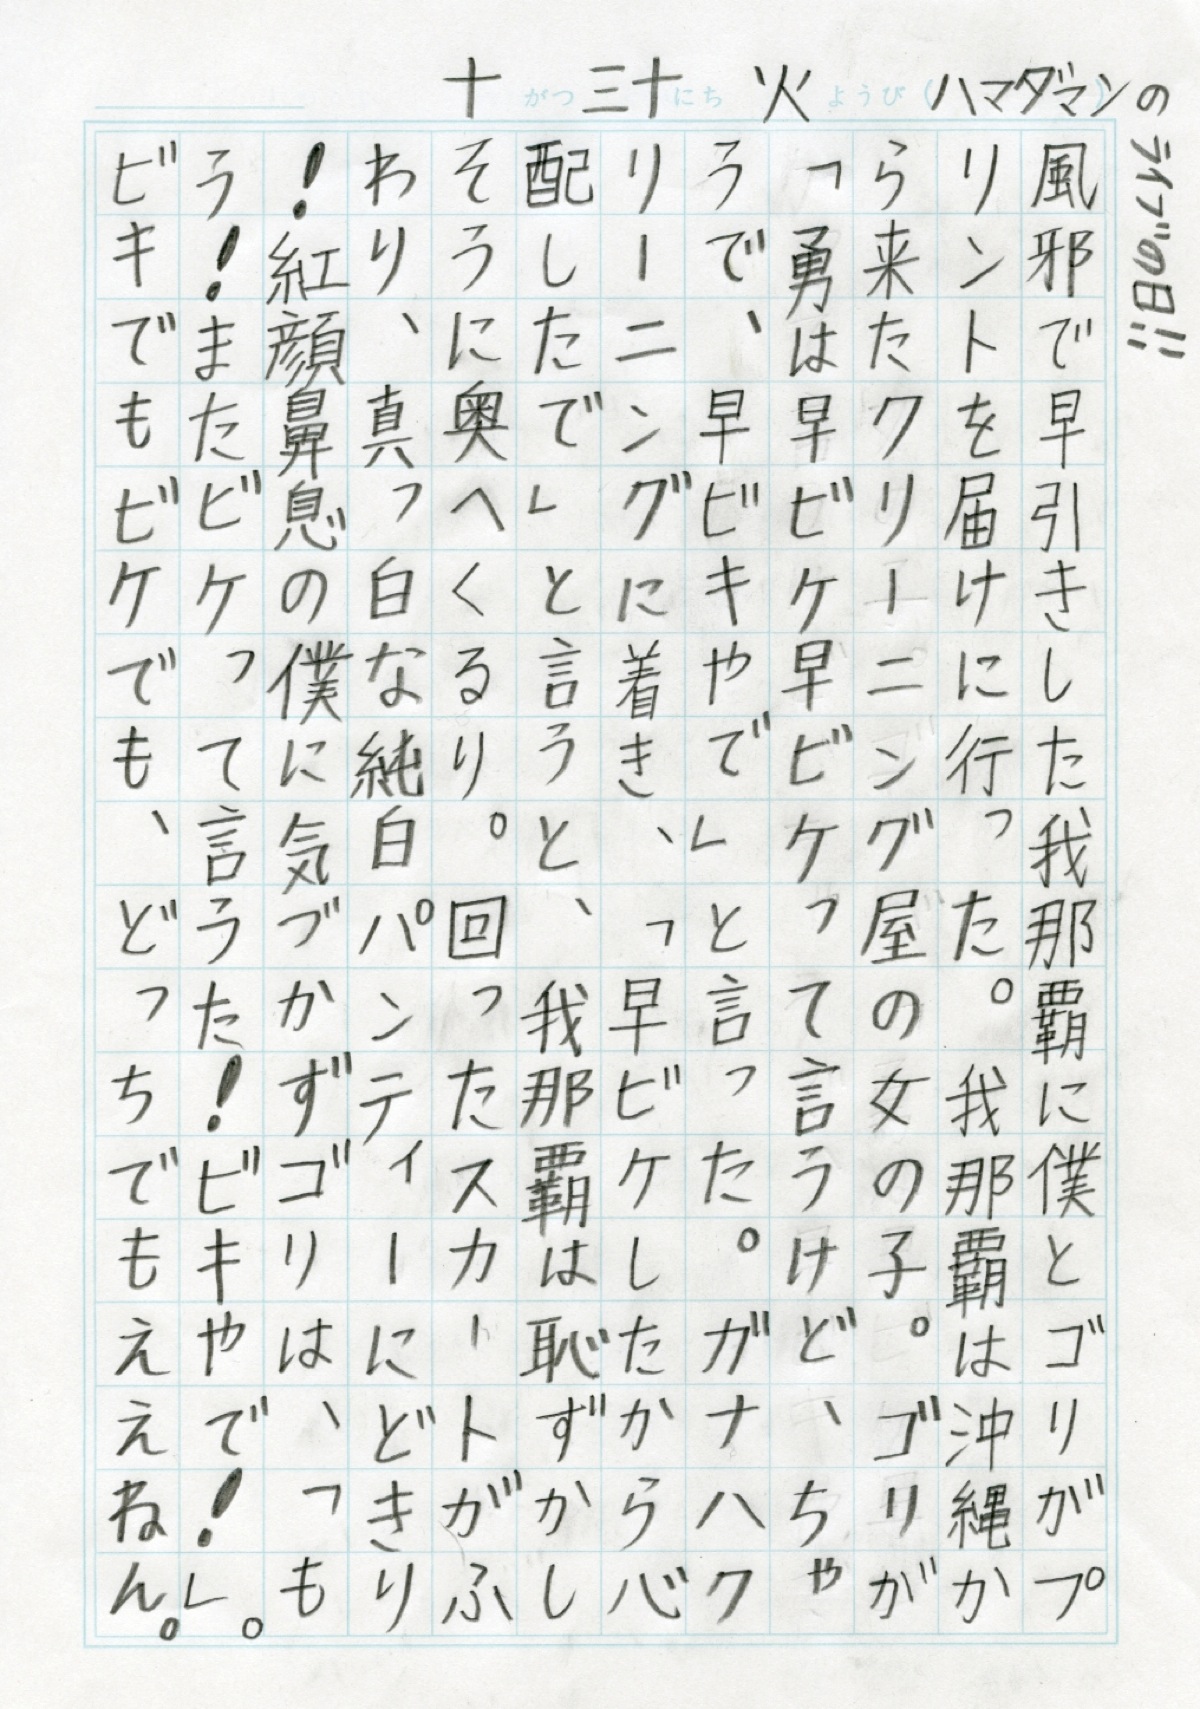 十がつ三十にち 火ようび(ハマダマンのライブの日!!
風邪で早引きした我那覇に僕とゴリがプ
リントを届けに行った。我那覇は沖縄か
ら来たクリーニング屋の女の子。ゴリが
「勇は早ビケ早ビケって言うけど、ちゃ
うで、早ビキやで」と言った。ガナハク
リーニングに着き、「早ビケしたから心
配したで」と言うと、我那覇は恥ずかし
そうに奥へくるり。回ったスカートがふ
わり、真っ白な純白パンティーにどきり
!紅顔鼻息の僕に気づかずゴリは、「も
う!またビケって言うた!ビキやで!」。
ビキでもビケでも、どっちでもええねん。